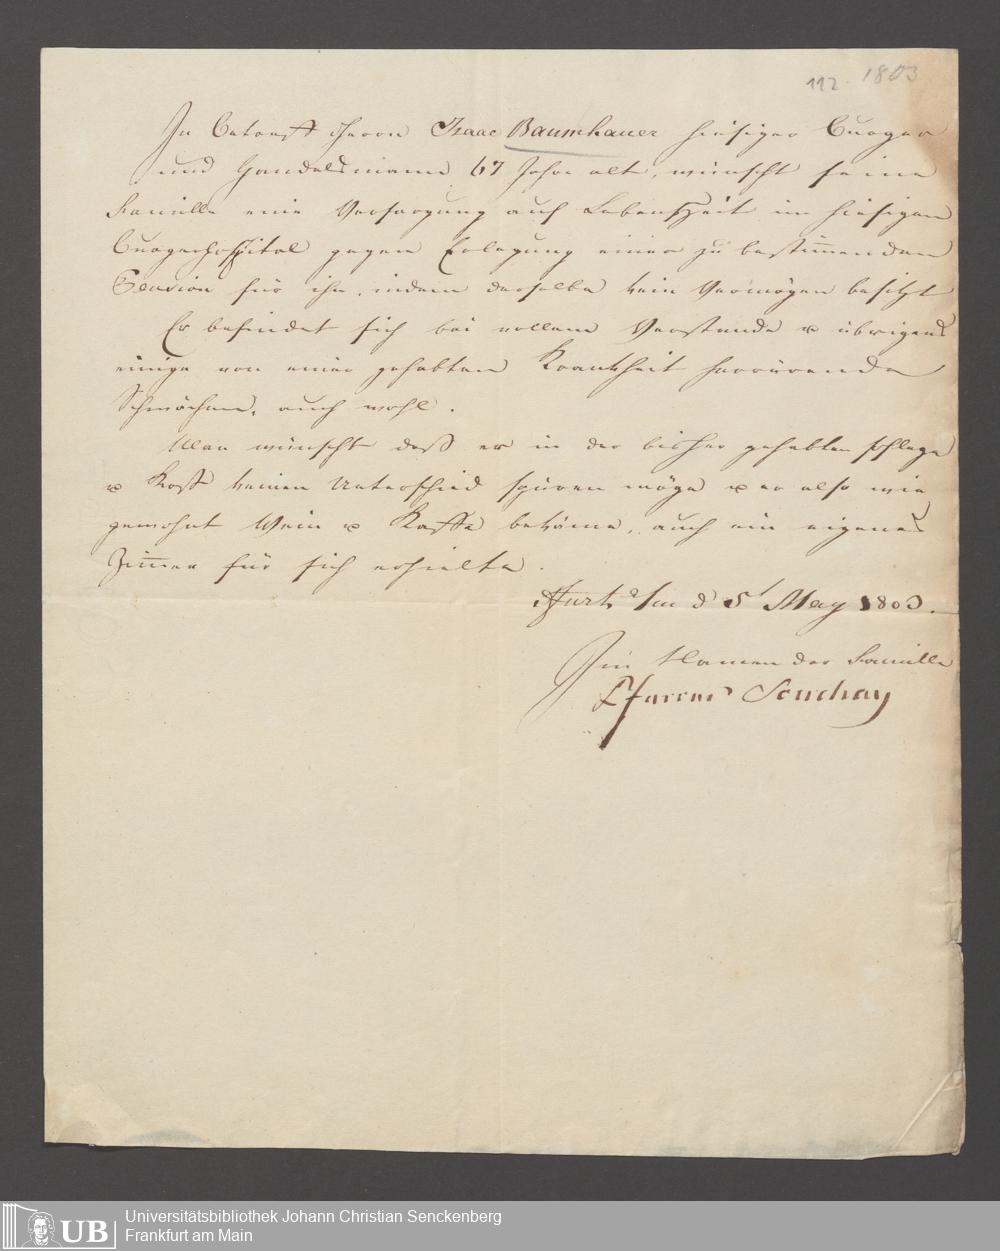 112. 1803
In Betreff Herrn Isaac Baumhauer hiesiger Burger
und Handelsmann 67 Jahre alt, wünscht seine
Familie eine Versorgung auf Lebenszeit im hiesigen
Burgerhospital gegen Erlegung einer zu bestim̅enden
Pension für ihn, indem derselbe kein Vermögen besitzt
Er befindet sich bei vollem Verstande u übrigens
einige von einer gehabten Krankheit herrürende
Schwächen, auch wohl.
Man wünscht daß er in der bisher gehabten Pflege
u Kost keinen Unterschied spüren möge u er also wie
gewohnt Wein u Kaffe bekäme, auch ein eigenes
Zim̅er für sich erhielte.
Ffurt d 5t May 1803.
Im Namen der Familie
Pfarrer Souchay
UB
Universitätsbibliothek Johann Christian Senckenberg
Frankfurt am Main